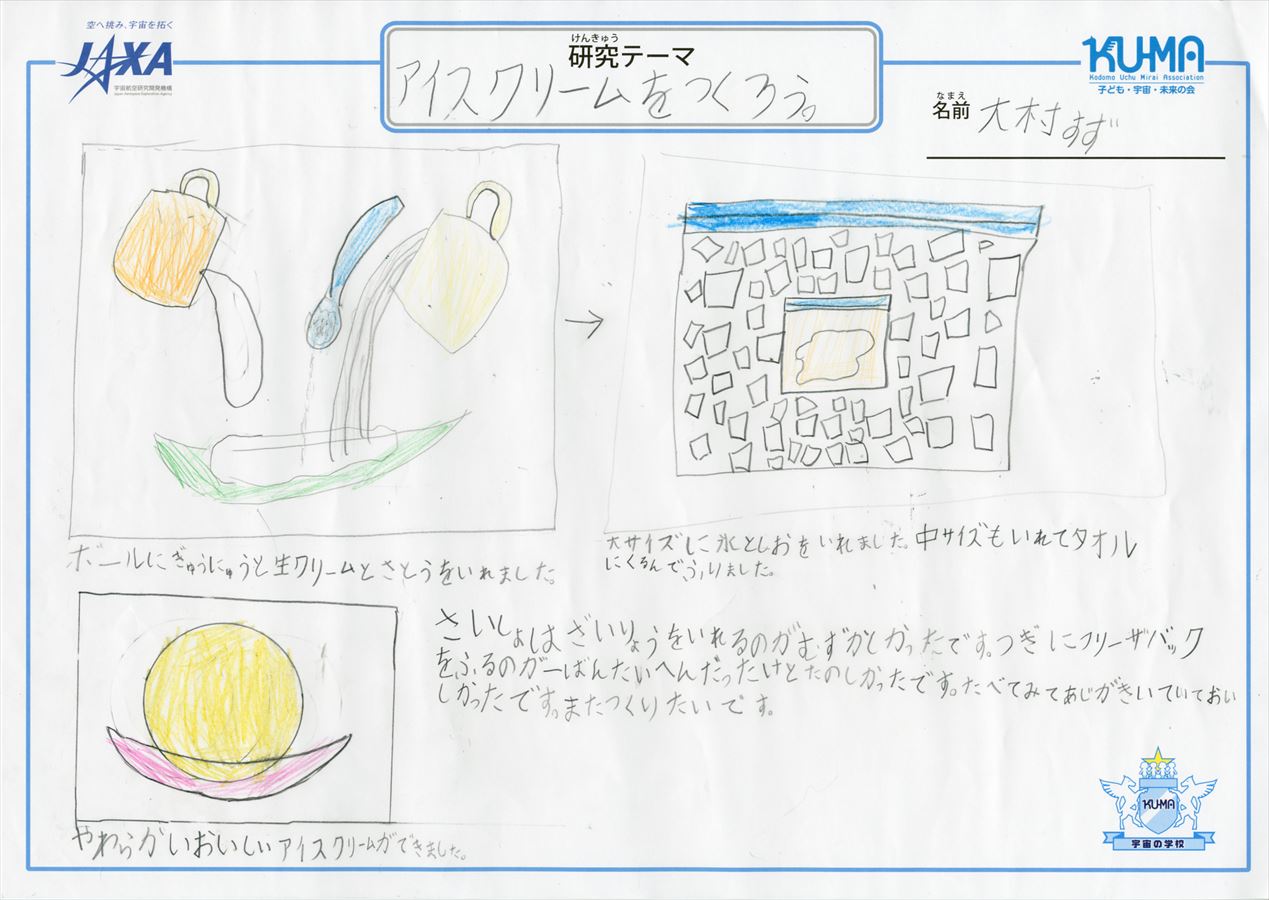 空へ挑み、宇宙を拓く
JAXA
宇宙航空研究開発機構
Japan Aerospace Exploration Agency
けんきゅう
研究テーマ
アイスクリームをつくろう。
KU-MA
Kodomo Uchu Mirai Association
子ども・宇宙・未来の会
なまえ
名前 大村すず
ボールにぎゅうにゅうと生クリームとさとうをいれました。
大サイズしに氷としおをいれました。中サイズもいれてタオル
にくるんでふりました。
さいしょはざいりょうをいれるのがむずかしかったです。つぎにフリーザバック
をふるのが一ばんたいへんだったけどたのしかったです。たべてみてあじがきいていておい
しかったです。またつくりたいです。
やわらかいおいしいアイスクリームができました。
KU-MA
宇宙の学校